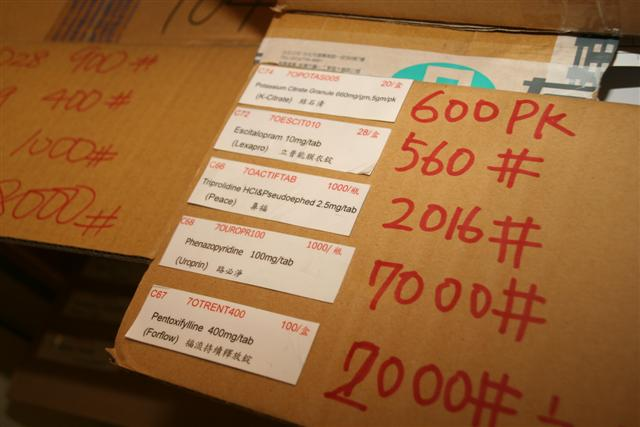 028 900#
400#
1000#
8000#
C74 7OPOTAS005 20/盒
Potassium Citrate Granule 660mg/gm,5gm/pk
(K-Citrate) 結石清
600PK
C72 7OESCIT010 28/盒
Escitalopram 10mg/tab
(Lexapro) 立普能膜衣錠
560#
C66 7OACTIFTAB 1000/瓶
Triprolidine HCl&Pseudoephed 2.5mg/tab
(Peace) 鼻福
2016#
C68 7OUROPR100 1000/瓶
Phenazopyridine 100mg/tab
(Uroprin) 路必淨
7000#
C67 7OTRENT400 100/盒
Pentoxifylline 400mg/tab
(Forflow) 福流持續釋放錠
2000#